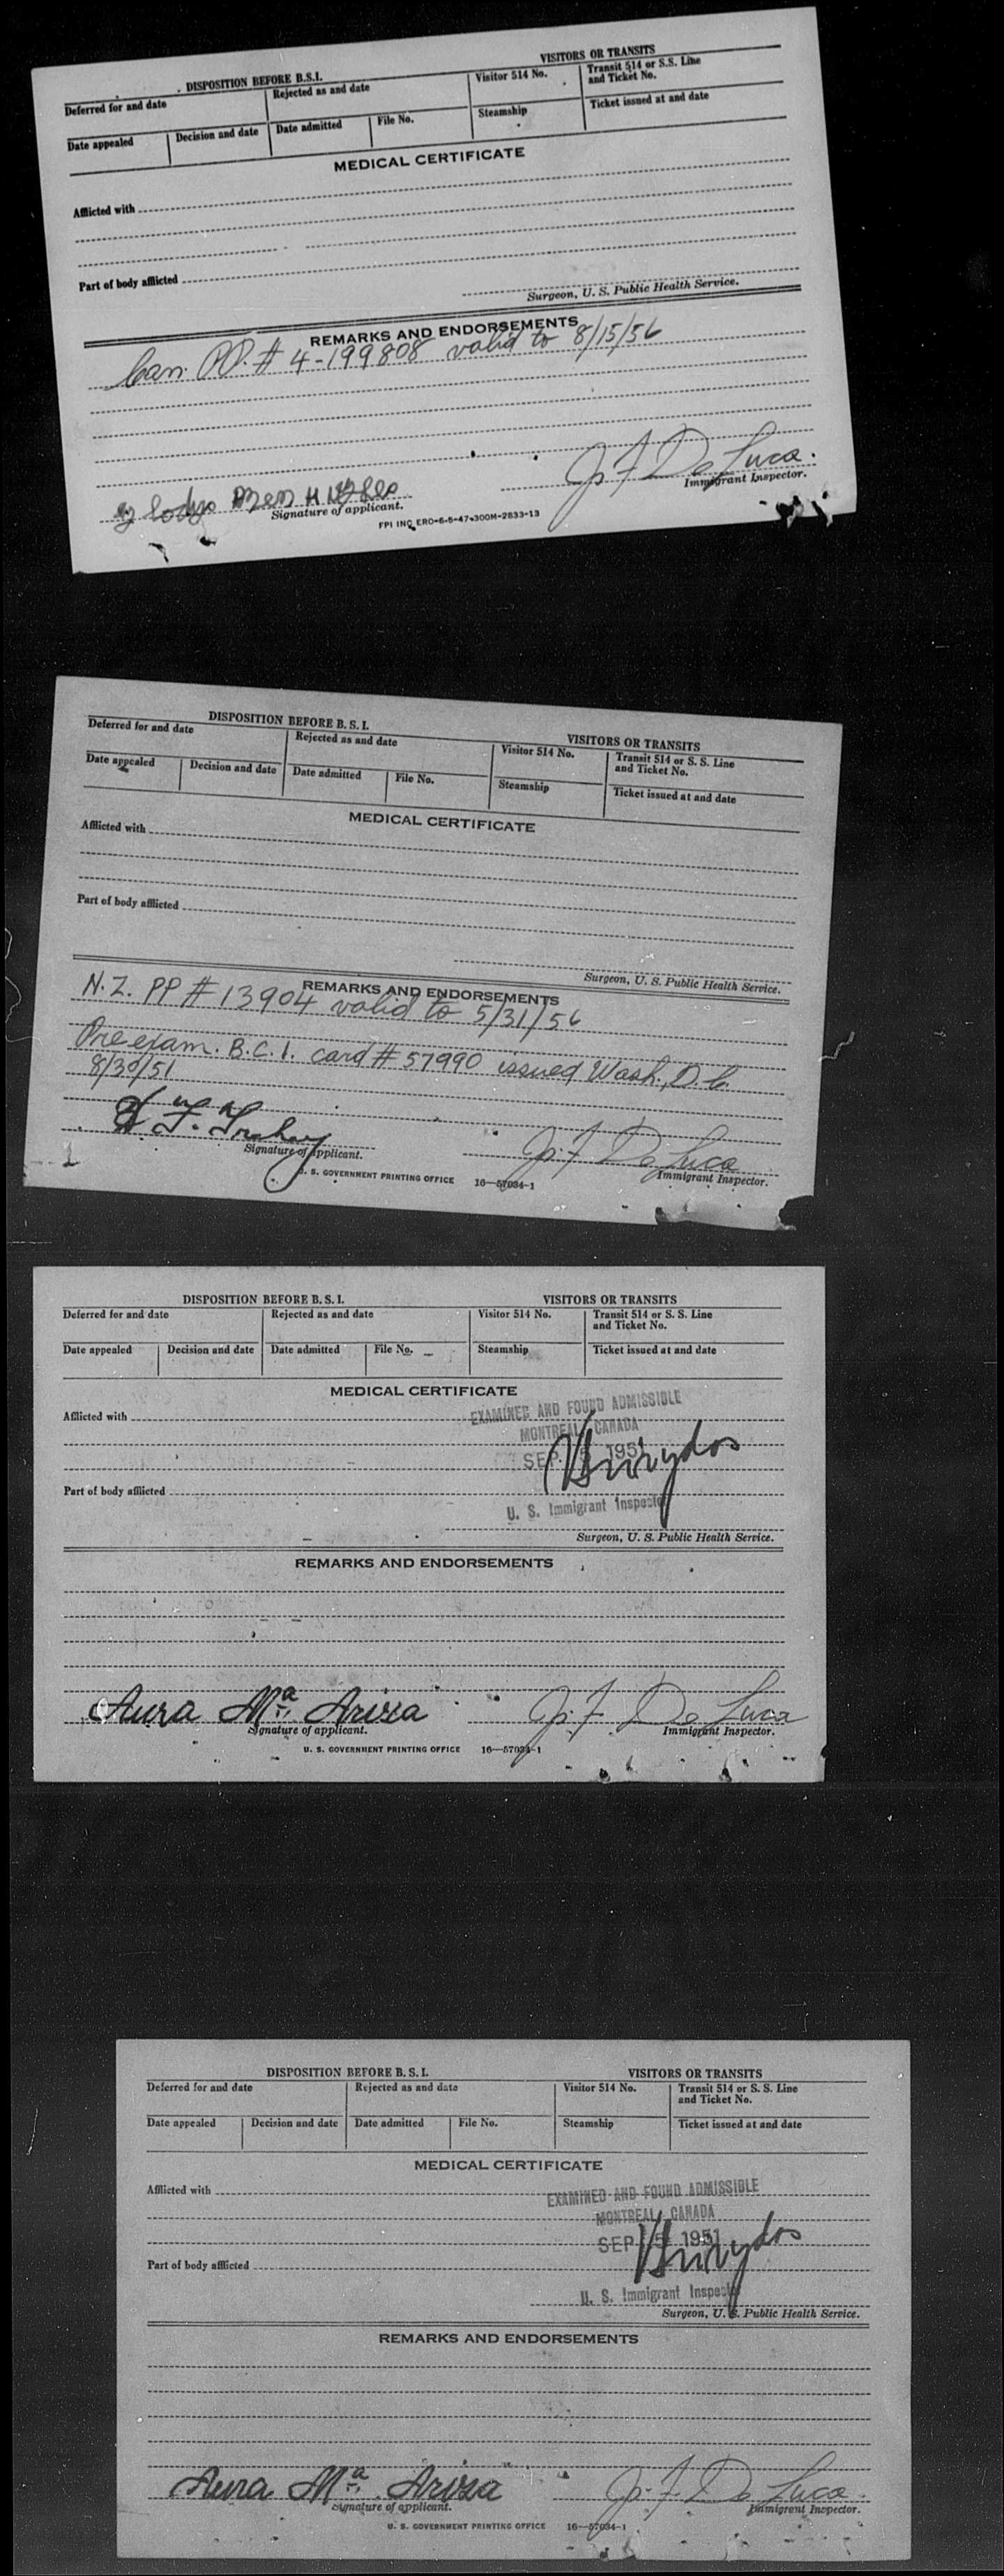 DISPOSITION BEFORE B.S.I.
VISITORS OR TRANSITS
Deferred for and date
Rejected as and date
Visitor 514 No.
Transit 514 or S.S. Line
and Ticket No.
Date appealed
Decision and date
Date admitted
File No.
Steamship
Ticket issued at and date
MEDICAL CERTIFICATE
Afflicted with
Part of body afflicted
Surgeon, U. S. Public Health Service.
REMARKS AND ENDORSEMENTS
Can. PP. # 4-199808 valid to 8/15/56
J F De Luca.
Immigrant Inspector.
Signature of applicant.
FPI INC ERO-6-5-47-300M-2833-13
DISPOSITION BEFORE B. S. I.
VISITORS OR TRANSITS
Deferred for and date
Rejected as and date
Visitor 514 No.
Transit 514 or S. S. Line
and Ticket No.
Date appealed
Decision and date
Date admitted
File No.
Steamship
Ticket issued at and date
MEDICAL CERTIFICATE
Afflicted with
Part of body afflicted
Surgeon, U. S. Public Health Service.
REMARKS AND ENDORSEMENTS
N.Z. PP # 13904 valid to 5/31/56
Pre exam. B.C.I. card # 57990 issued Wash., D.C.
8/30/51
J. F De Luca
Signature of applicant.
Immigrant Inspector.
U. S. GOVERNMENT PRINTING OFFICE 16—57034-1
DISPOSITION BEFORE B. S. I.
VISITORS OR TRANSITS
Deferred for and date
Rejected as and date
Visitor 514 No.
Transit 514 or S. S. Line
and Ticket No.
Date appealed
Decision and date
Date admitted
File No.
Steamship
Ticket issued at and date
MEDICAL CERTIFICATE
Afflicted with
EXAMINED AND FOUND ADMISSIBLE
MONTREAL, CANADA
SEP 5 1951
Part of body afflicted
U. S. Immigrant Inspector
Surgeon, U. S. Public Health Service.
REMARKS AND ENDORSEMENTS
Aura Mª. Ariza
J. F De Luca
Signature of applicant.
Immigrant Inspector.
U. S. GOVERNMENT PRINTING OFFICE 16—57034-1
DISPOSITION BEFORE B. S. I.
VISITORS OR TRANSITS
Deferred for and date
Rejected as and date
Visitor 514 No.
Transit 514 or S. S. Line
and Ticket No.
Date appealed
Decision and date
Date admitted
File No.
Steamship
Ticket issued at and date
MEDICAL CERTIFICATE
Afflicted with
EXAMINED AND FOUND ADMISSIBLE
MONTREAL, CANADA
SEP 5 1951
Part of body afflicted
U. S. Immigrant Inspector
Surgeon, U. S. Public Health Service.
REMARKS AND ENDORSEMENTS
Aura Mª. Ariza
J. F De Luca.
Signature of applicant.
Immigrant Inspector.
U. S. GOVERNMENT PRINTING OFFICE 16—57034-1